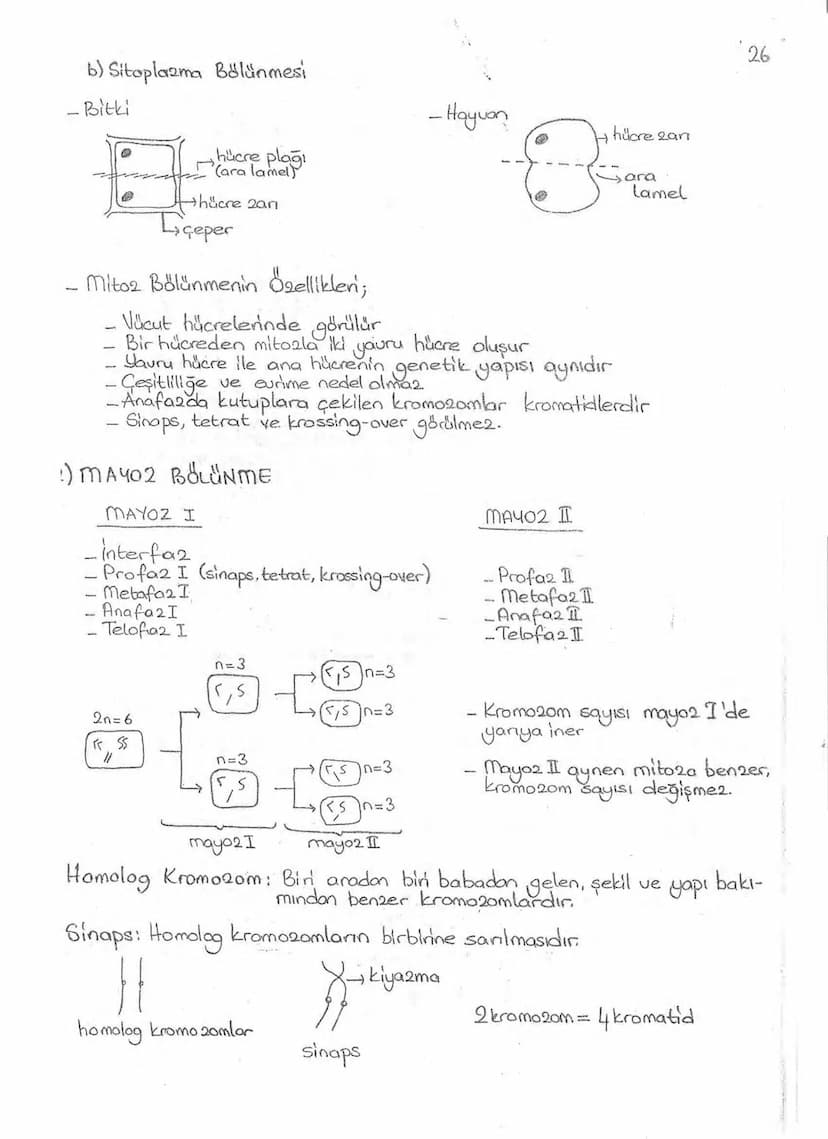 26
b) Sitoplazma Bölünmesi
- Bitki
hücre plağı
(ara lamel)
hücre zarı
çeper
- Hayvan
hücre zarı
ara
lamel
- Mitoz Bölünmenin Özellikleri;
- Vücut hücrelerinde görülür
- Bir hücreden mitozla iki yavru hücre oluşur
- Yavru hücre ile ana hücrenin genetik yapısı aynıdır
- Çeşitliliğe ve evrime nedel olmaz
- Anafazda kutuplara çekilen kromozomlar kromatidlerdir
- Sinops, tetrat ve krossing-over görülmez.
!) MAYOZ BÖLÜNME
MAYOZ I
- İnterfaz
- Profaz I (sinaps, tetrat, krossing-over)
- Metafaz I
- Anafaz I
- Telofaz I
MAYOZ II
- Profaz II
- Metafaz II
- Anafaz II
- Telofaz II
2n=6
n=3
n=3
n=3
n=3
n=3
n=3
mayoz I
mayoz II
- Kromozom sayısı mayoz I'de
yarıya iner
- Mayoz II aynen mitoza benzer,
kromozom sayısı değişmez.
Homolog Kromozom: Biri anadan biri babadan gelen, şekil ve yapı bakı-
mından benzer kromozomlardır.
Sinaps: Homolog kromozomların birbirine sarılmasıdır.
homolog kromozomlar
kiyazma
sinaps
2 kromozom = 4 kromatid